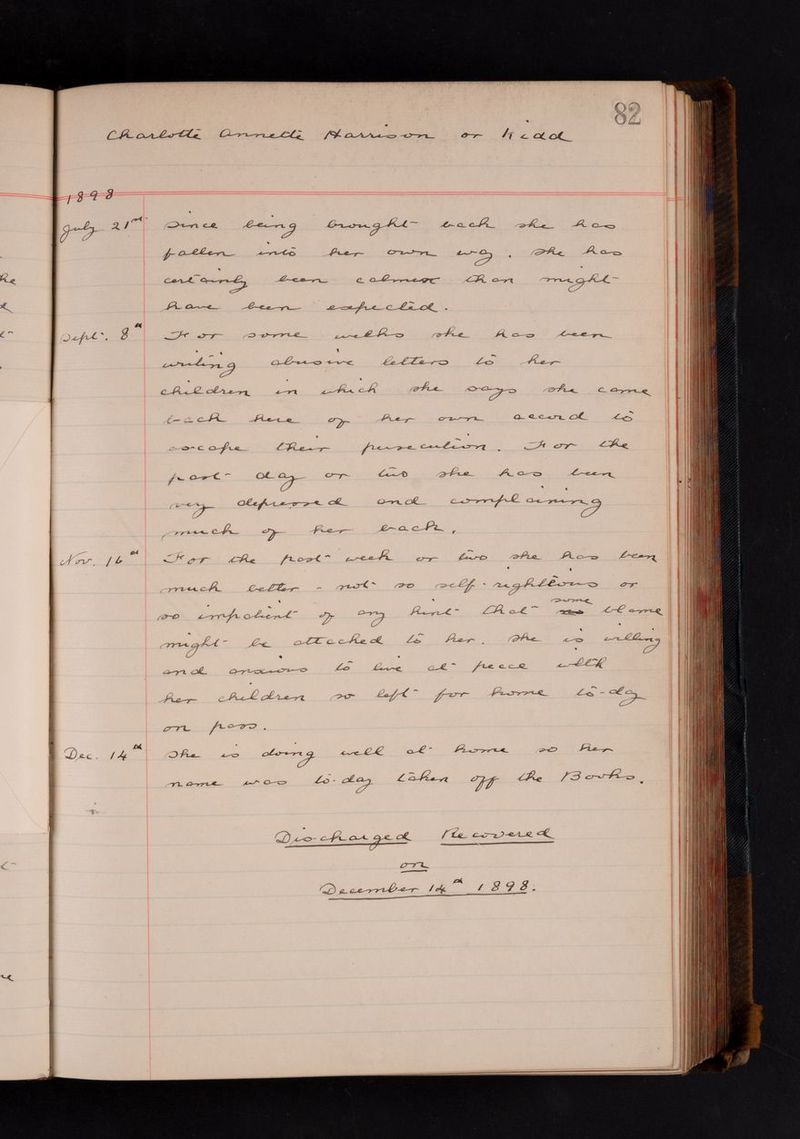 82
Charlotte Annette Harrison or Kidd
1898
July 21st Since being brought back she has
fallen into her own way. She has
certainly been calmer than might
have been expected.
Sept. 8th For some weeks she has been
writing abusive letters to her
children in which she says she came
back here of her own accord to
escape their persecution. For the
past day or two she has been
very depressed and complaining
much of her back.
Nov. 16th For the past week or two she has been
much better - not so self-righteous or
so impatient of any hint that some blame
might be attached to her. She is willing
and anxious to live at peace with
her children so left for home to-day
on pass.
Dec. 14th She is doing well at home so her
name was to-day taken off the Books.
Discharged Recovered
on
December 14th 1898.